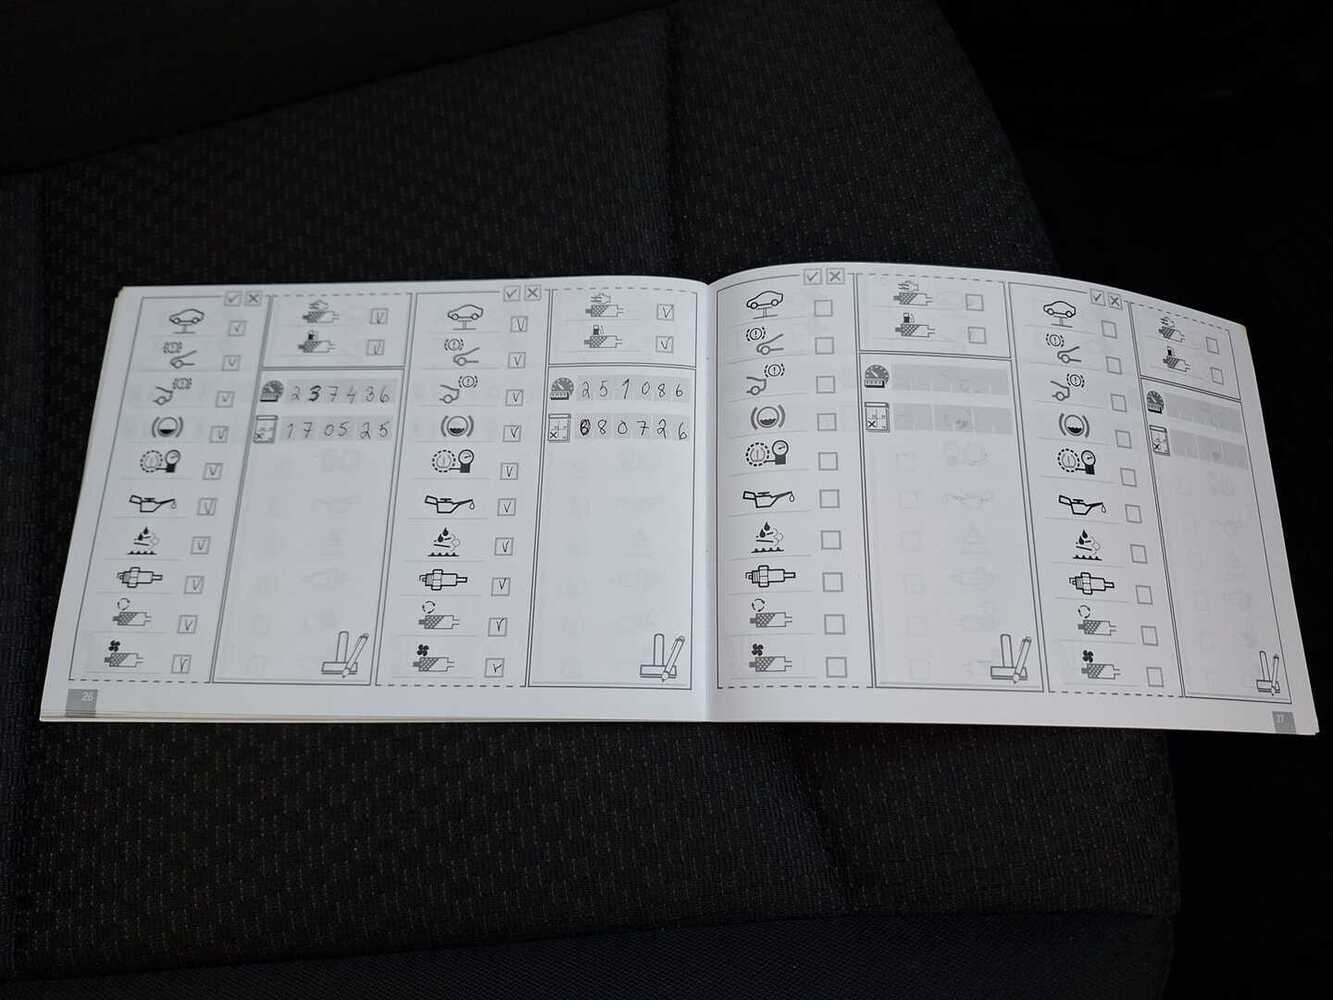 237436
170525
251086
080726
26
27